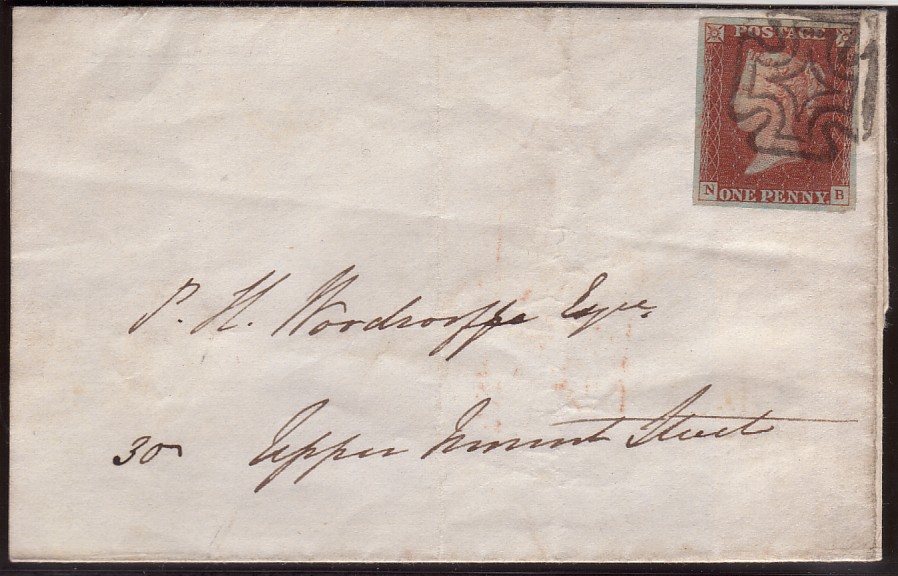 POSTAGE
N ONE PENNY. B
P. H. Woodrooffe Esqre,
30 Upper Mount Street